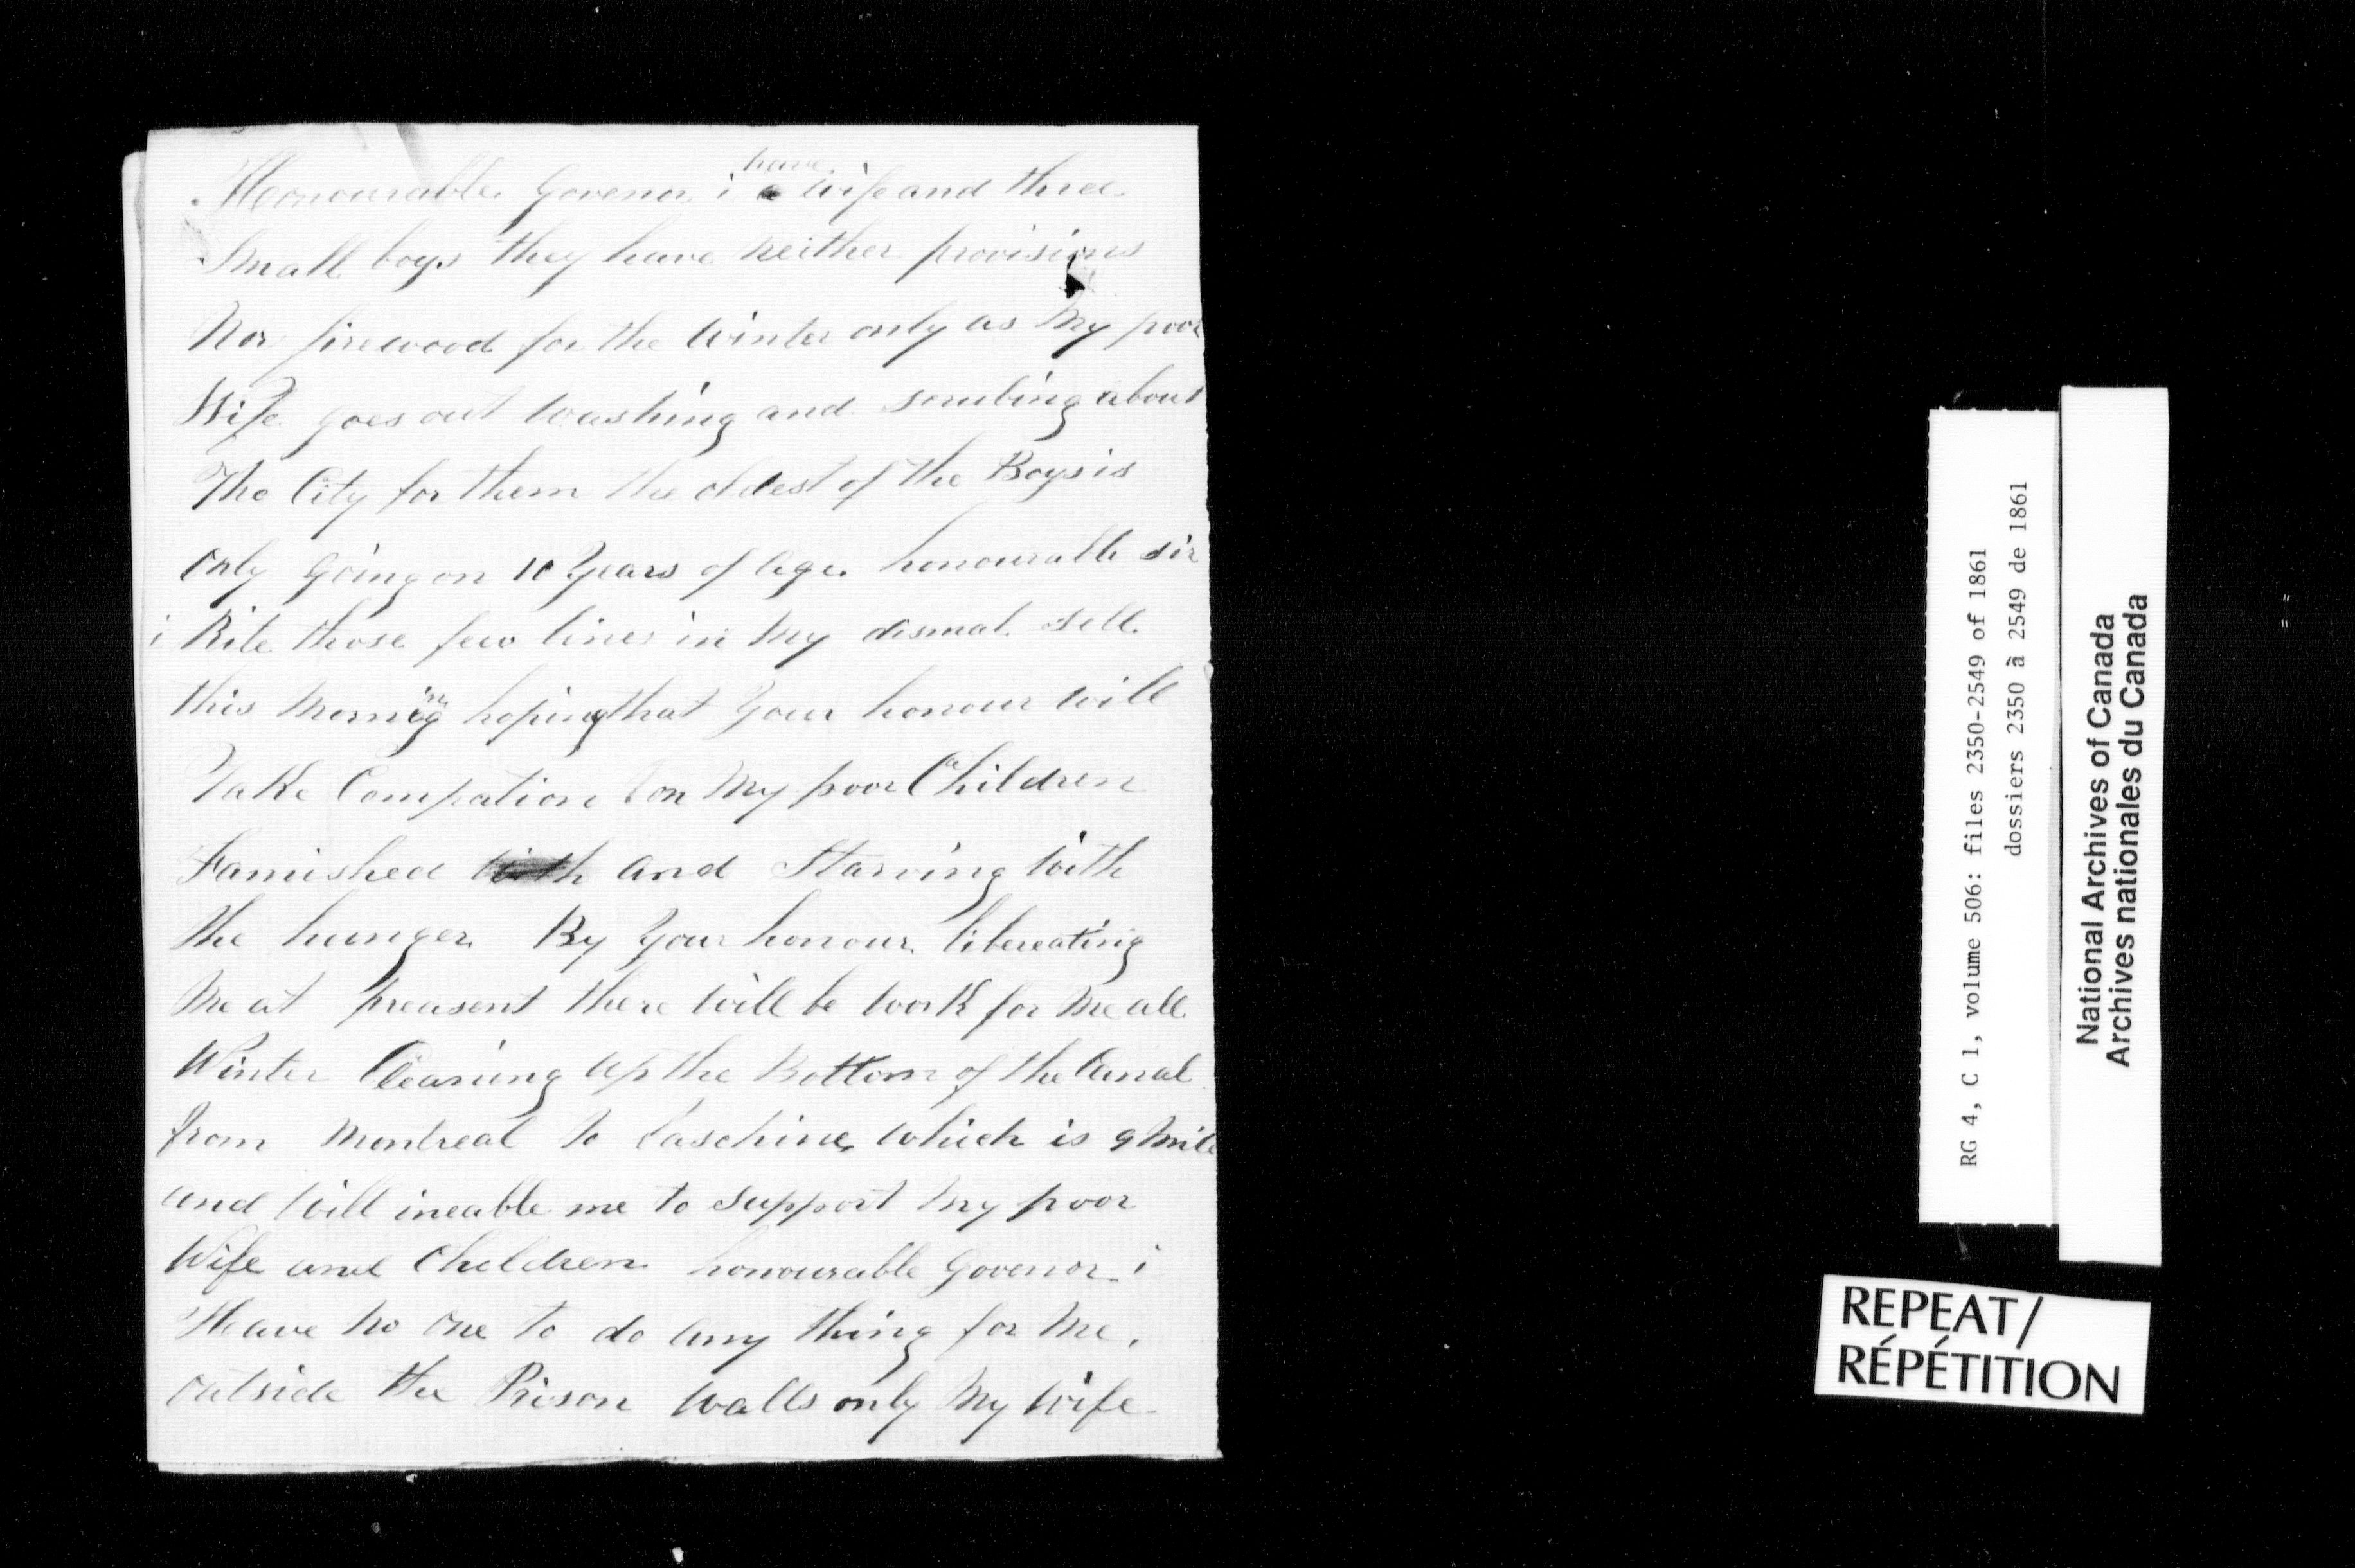 Honourable Govenor i have a wife and three
Small boys they have neither provisions
Nor firewood for the winter only as My poor
Wife goes out washing and scrubing about
The City for them the oldest of the Boys is
only going on 10 Years of Age honourable sir
i Rite those few lines in My dismal sell
this Morning hoping that Your honour will
Take Compation on My poor Children
Famished with and Starving with
the hunger By Your honour libereating
Me at preasent there will be work for Me all
Winter Cleaning Up the Bottom of the Canal
from Montreal to Laschine which is 9 Mile
and will ineable me to support My poor
Wife and Children honourable Govenor i
Have No One to do Any thing for Me.
outside the Prison walls only My Wife
RG 4, C 1, volume 506: files 2350-2549 of 1861
dossiers 2350 à 2549 de 1861
National Archives of Canada
Archives nationales du Canada
REPEAT/
RÉPÉTITION